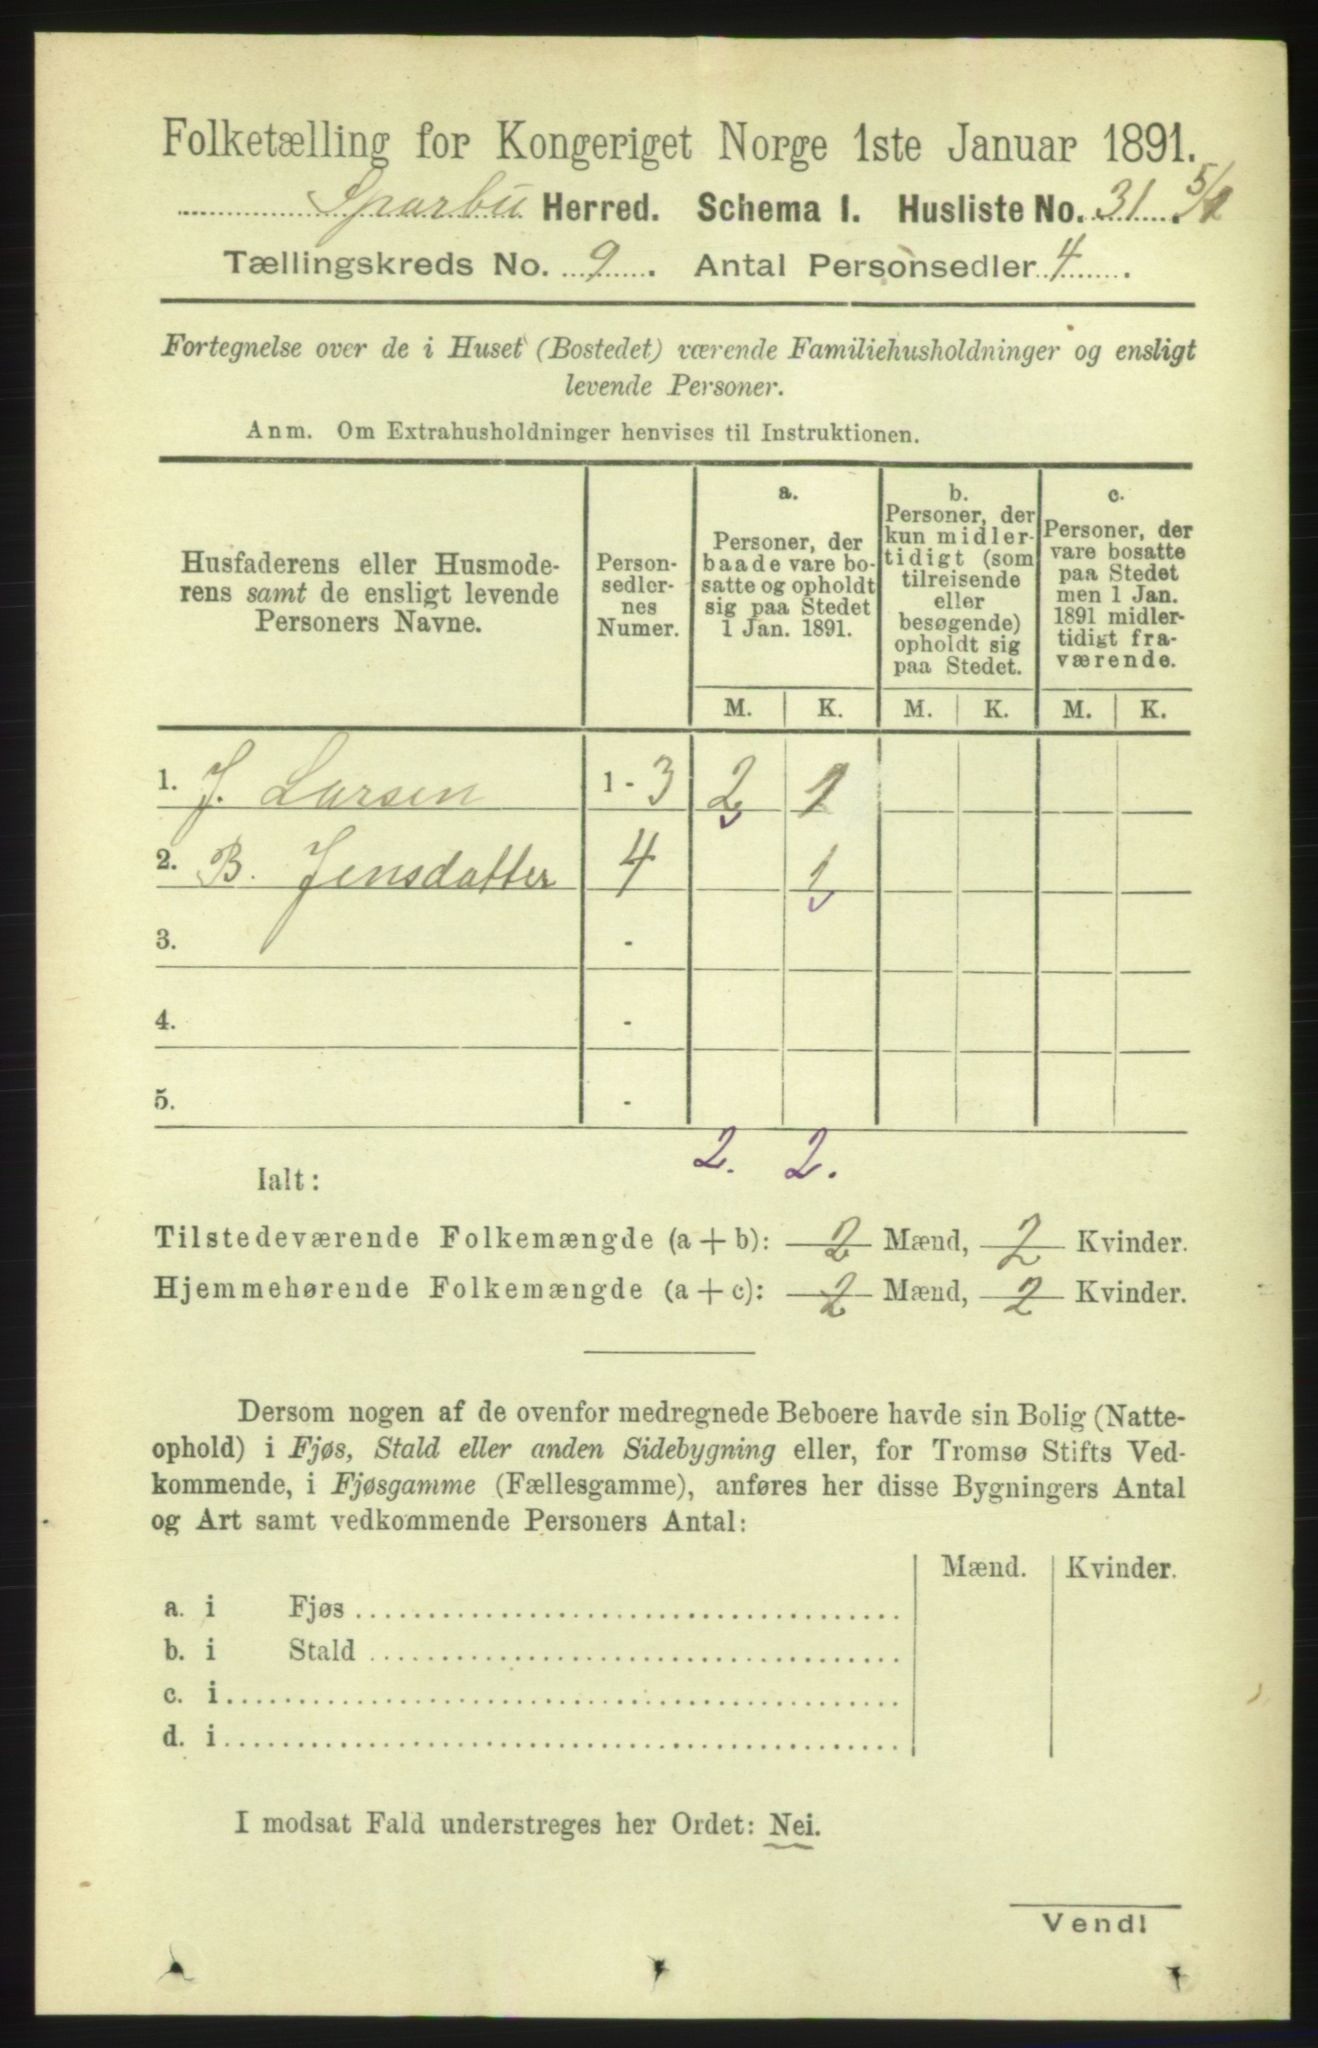 Folketælling for Kongeriget Norge 1ste Januar 1891.
Sparbu Herred. Schema I. Husliste No. 31
Tællingskreds No. 9. Antal Personsedler 4.
Fortegnelse over de i Huset (Bostedet) værende Familiehusholdninger og ensligt
levende Personer.
Anm. Om Extrahusholdninger henvises til Instruktionen.
Husfaderens eller Husmode-
rens samt de ensligt levende
Personers Navne.
Person-
sedler-
nes
Numer.
a.
Personer, der
baade vare bo-
satte og opholdt
sig paa Stedet
1 Jan. 1891.
b.
Personer, der
kun midler-
tidigt (som
tilreisende
eller
besøgende)
opholdt sig
paa Stedet.
c.
Personer, der
vare bosatte
paa Stedet
men 1 Jan.
1891 midler-
tidigt fra-
værende.
M. K. M. K. M. K.
1. J. Larsen 1 - 3 2 1
2. B. Jensdatter 4 1
3. -
4. -
5. -
2. 2.
Ialt:
Tilstedeværende Folkemængde (a + b): 2 Mænd, 2 Kvinder.
Hjemmehørende Folkemængde (a + c): 2 Mænd, 2 Kvinder.
Dersom nogen af de ovenfor medregnede Beboere havde sin Bolig (Natte-
ophold) i Fjøs, Stald eller anden Sidebygning eller, for Tromsø Stifts Ved-
kommende, i Fjøsgamme (Fællesgamme), anføres her disse Bygningers Antal
og Art samt vedkommende Personers Antal:
Mænd. Kvinder.
a. i Fjøs
b. i Stald
c. i
d. i
I modsat Fald understreges her Ordet: Nei.
Vend!